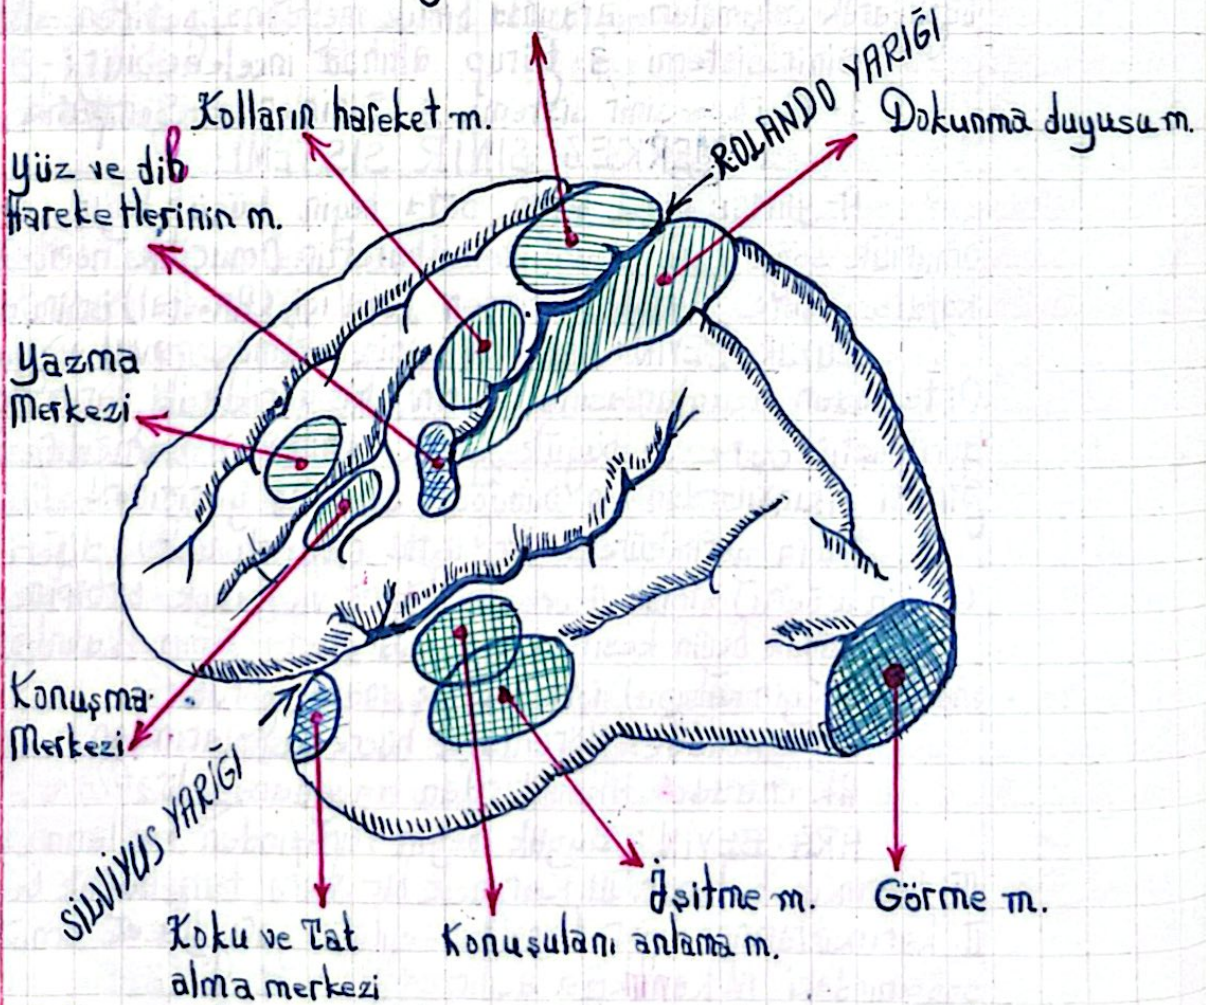 Kolların hareket m.
ROLANDO YARIĞI
Dokunma duyusu m.
Yüz ve dil
Hareketlerinin m.
Yazma
Merkezi
Konuşma
Merkezi
SİLVİYUS YARIĞI
Koku ve Tat
alma merkezi
Konuşulanı anlama m.
İşitme m.
Görme m.